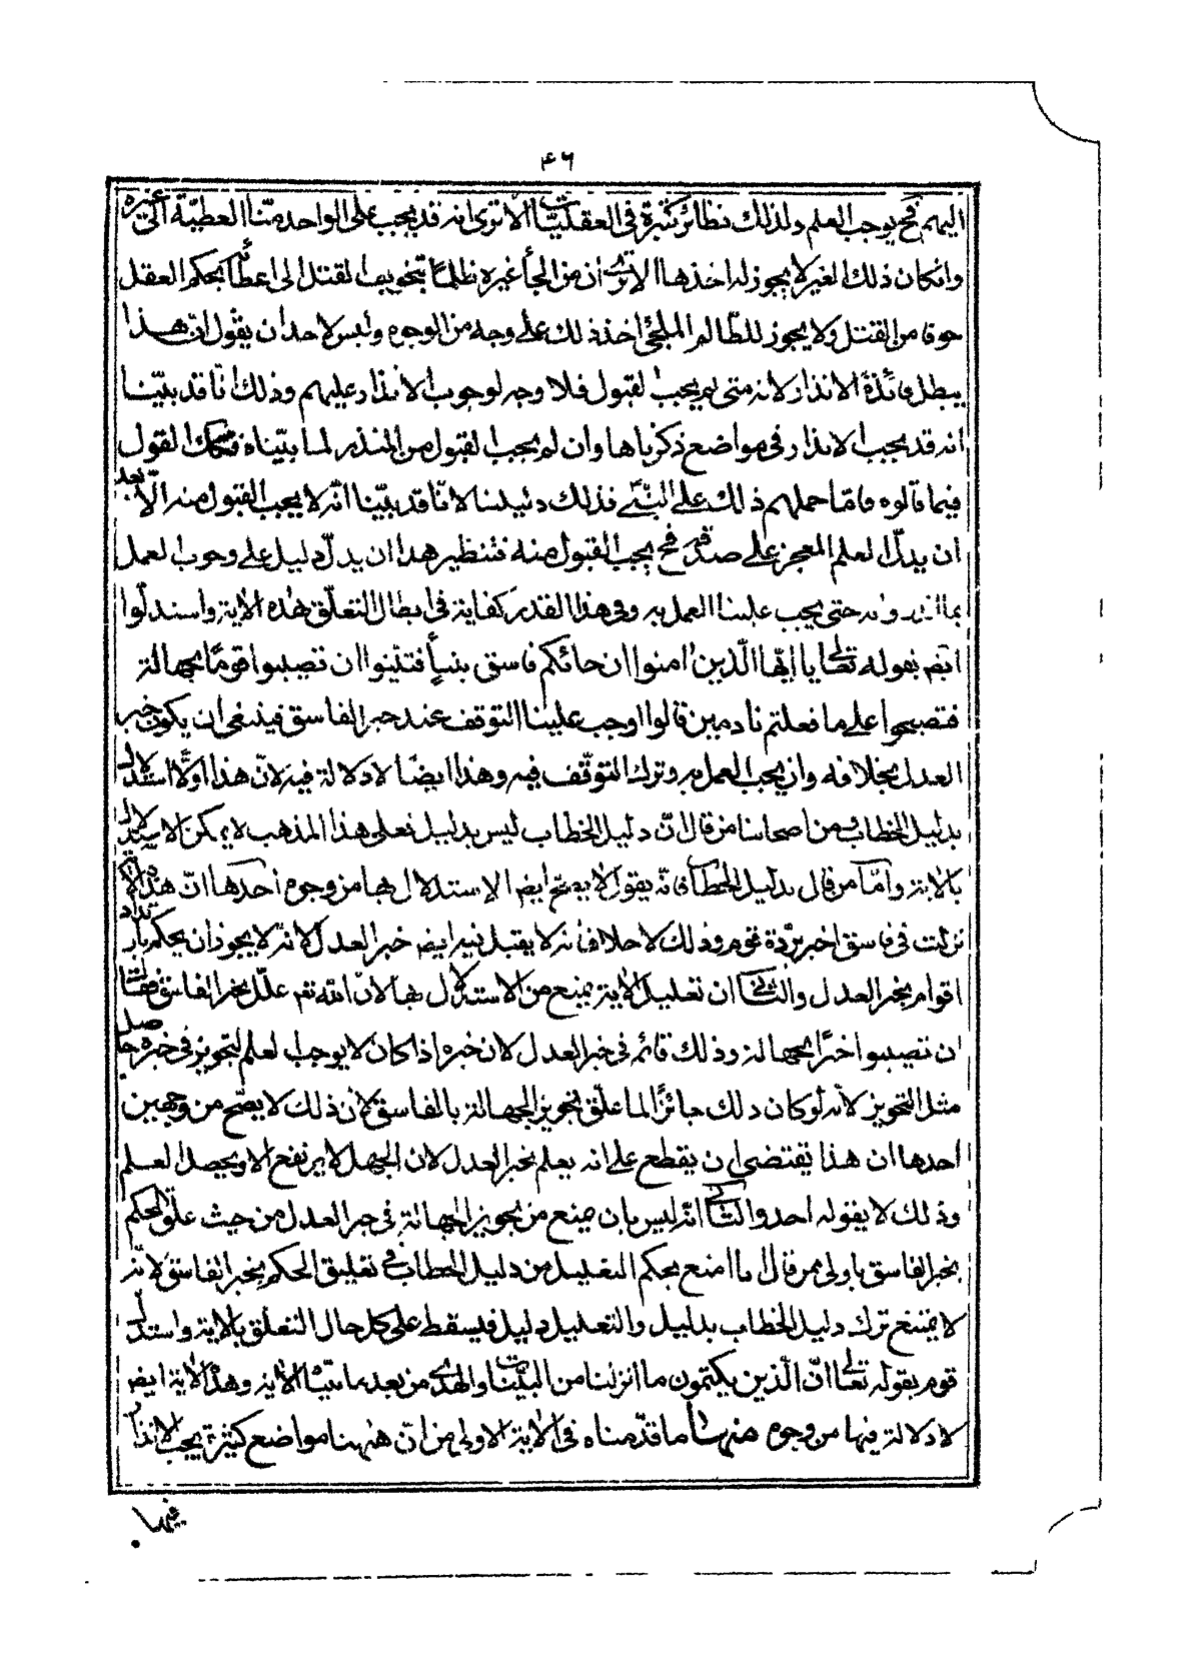 ٤٦
اليهم فح يوجب العلم ولذلك نظائر كثيرة في العقليات الا ترى انه قد يجب على الواحد منا العطية الى غيره
وان كان ذلك الغير لا يجوز له اخذها الا ترى ان من الجأ غيره ظلما بتخويف القتل الى اعطائه يحكم العقل
خوفا من القتل ولا يجوز للظالم الملجئ اخذ ذلك على وجه من الوجوه وليس لاحد ان يقول ان هذا
يبطل فائدة الانذار لانه متى لم يجب القبول فلا وجه لوجوب الانذار عليهم وذلك انا قد بينا
انه قد يجب الانذار في مواضع ذكرناها وان لم يجب القبول من المنذر لما بيناه فكك القول
فيما قالوه فامّا حملهم ذلك على النبي فذلك دليلنا لانا قد بيّنا انّه لا يجب القبول منه الّا بعد
ان يدلّ العلم المعجز على صدقه فح يجب القبول منه فنظير هذا ان يدلّ دليل على وجوب العمل
بما انذروا به حتى يجب علينا العمل به وفي هذا القدر كفاية في ابطال التعلّق بهذه الاية واستدلّوا
ايضم بقوله تعالى يا ايّها الّذين امنوا ان جائكم فاسق بنبأ فتبيّنوا ان تصيبوا قومًا بجهالة
فتصبحوا على ما فعلتم نادمين قالوا اوجب علينا التوقف عند خبر الفاسق فينبغي ان يكون خبر
العدل بخلافه وان يجب العمل به وترك التوقّف فيه وهذا ايضًا لا دلالة فيه لانّ هذا اوّلًا استدلال
بدليل الخطاب ومن اصحابنا من قال انّ دليل الخطاب ليس بدليل فعلى هذا المذهب لا يمكن الاستدلال
بالاية وامّا من قال بدليل الخطاب فانه يقول لا يصح ايض الاستدلال بها من وجوه احدها انّ هذه الاية
نزلت في فاسق اخبر بردّة قوم وذلك لا خلاف انه لا يقبل فيه ايض خبر العدل لانّه لا يجوز ان يحكم بارتداد
اقوام بخبر العدل والثاني ان تعليل الاية يمنع من الاستدلال بها لان الله تعم علّل خبر الفاسق فقال
ان تصيبوا اخبرًا بجهالة وذلك قائم في خبر العدل لان خبره اذا كان لا يوجب العلم فالتجويز في خبره حاصل
مثل التجويز لانّه لو كان ذلك جائزًا لما علّق تجويز الجهالة بالفاسق لان ذلك لا يصّح من وجهين
احدها ان هذا يقتضي ان يقطع على انه يعلم بخبر العدل لان الجهل لا يرتفع الا ويحصل العلم
وذلك لا يقوله احد والثاني انّه ليس بان يمنع من تجويز الجهالة في خبر العدل من حيث علّق الحكم
بخبر الفاسق باولى ممن قال انا امنع بحكم التعليل من دليل الخطاب في تعليق الحكم بخبر الفاسق لانّه
لا يمتنع ترك دليل الخطاب بدليل والتعليل دليل فيسقط على كل حال التعلق بالاية واستدلّ
قوم بقوله تعالى انّ الّذين يكتمون ما انزلنا من البيّنات والهدى من بعد ما بيّنّاه الاية وهذه الاية ايض
لا دلالة فيها من وجوه منها ما قدّمناه في الاية الاولى من انّ ههنا مواضع كثيرة يجب الانذار
فيها